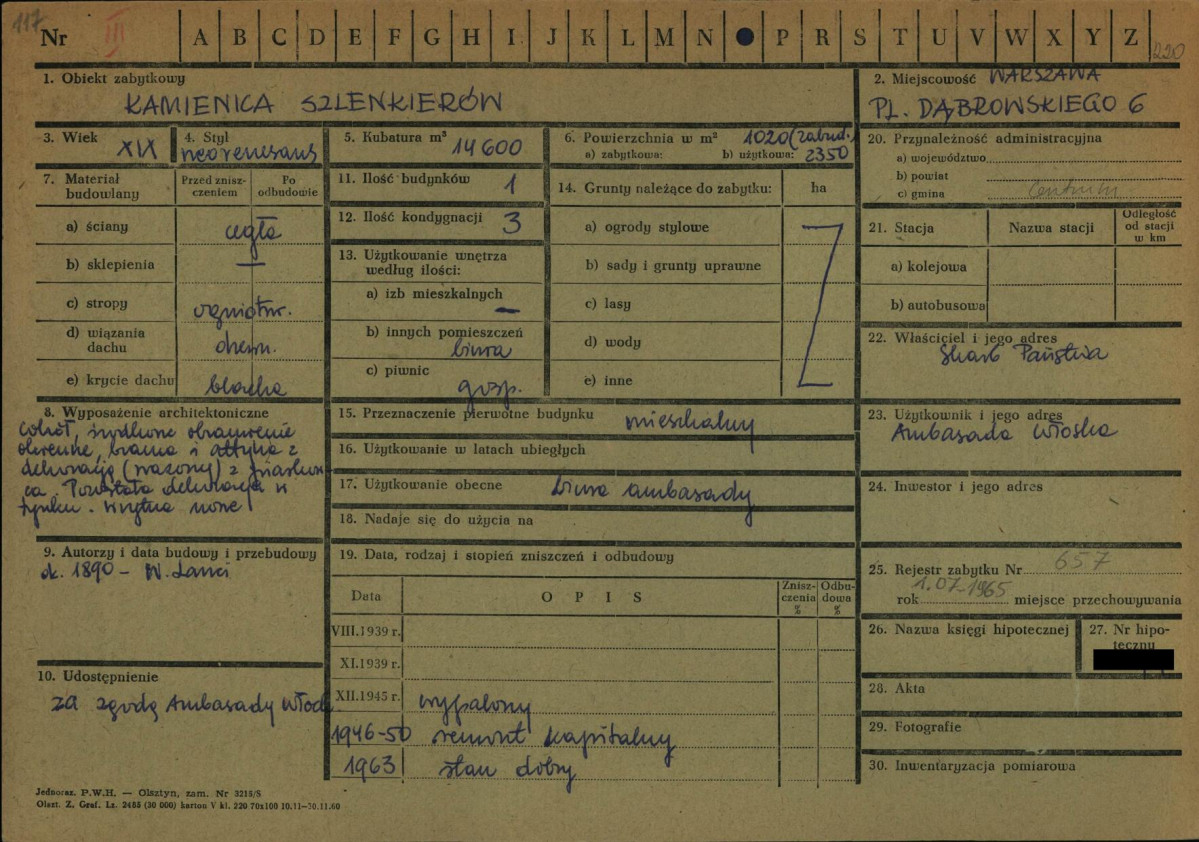 117
Nr III A B C D E F G H I J K L M N P R S T U V W X Y Z
220
1. Obiekt zabytkowy
KAMIENICA SZLENKIERÓW
2. Miejscowość WARSZAWA
PL. DĄBROWSKIEGO 6
3. Wiek XIX
4. Styl neorenesans
5. Kubatura m³ 14600
6. Powierzchnia w m² 1020 (zabud.)
a) zabytkowa: b) użytkowa: 2350
7. Materiał budowlany
Przed zniszczeniem
Po odbudowie
a) ściany cegła
b) sklepienia —
c) stropy ogniotrw.
d) wiązania dachu drewn.
e) krycie dachu blacha
8. Wyposażenie architektoniczne
cokół, obramienie
okienne, brama i attyka z
dekoracją (wazony) z piaskow
ca. Pozostała dekoracja w
tynku. Wnętrza nowe
9. Autorzy i data budowy i przebudowy
ok. 1890 – W. Lanci
10. Udostępnienie
za zgodą Ambasady Włosk.
11. Ilość budynków 1
12. Ilość kondygnacji 3
13. Użytkowanie wnętrza
według ilości:
a) izb mieszkalnych —
b) innych pomieszczeń
biura
c) piwnic
gosp.
14. Grunty należące do zabytku: ha
a) ogrody stylowe
b) sady i grunty uprawne
c) lasy
d) wody
e) inne
15. Przeznaczenie pierwotne budynku mieszkalny
16. Użytkowanie w latach ubiegłych
17. Użytkowanie obecne biura ambasady
18. Nadaje się do użycia na
19. Data, rodzaj i stopień zniszczeń i odbudowy
Data OPIS Zniszczenia % Odbudowa %
VIII.1939 r.
XI.1939 r.
XII.1945 r. wypalony
1946-50 remont kapitalny
1963 stan dobry
20. Przynależność administracyjna
a) województwo
b) powiat
c) gmina Centrum
21. Stacja Nazwa stacji Odległość od stacji w km
a) kolejowa
b) autobusowa
22. Właściciel i jego adres
Skarb Państwa
23. Użytkownik i jego adres
Ambasada Włoska
24. Inwestor i jego adres
25. Rejestr zabytku Nr 657
rok 1.07.1965 miejsce przechowywania
26. Nazwa księgi hipotecznej
27. Nr hipoteczny
28. Akta
29. Fotografie
30. Inwentaryzacja pomiarowa
Jednoraz. P.W.H. — Olsztyn, zam. Nr 3215/S
Olszt. Z. Graf. Lz. 2485 (30 000) karton V kl. 220 70x100 10.11—30.11.60